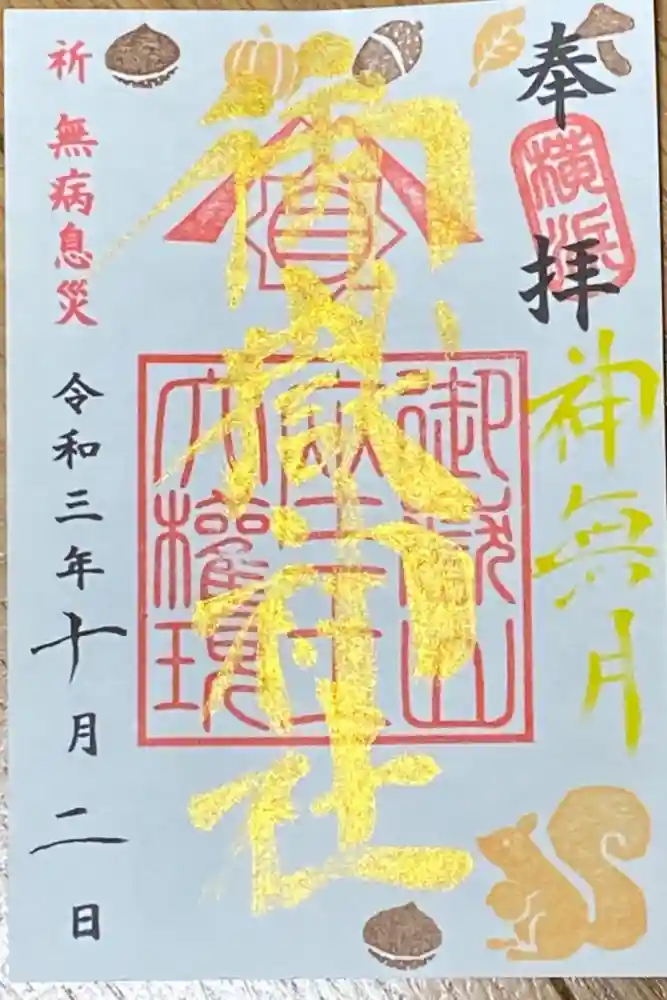 奉拝
横浜
神無月
御嶽神社
御嶽山
大權現
祈 無病息災
令和三年十月二日